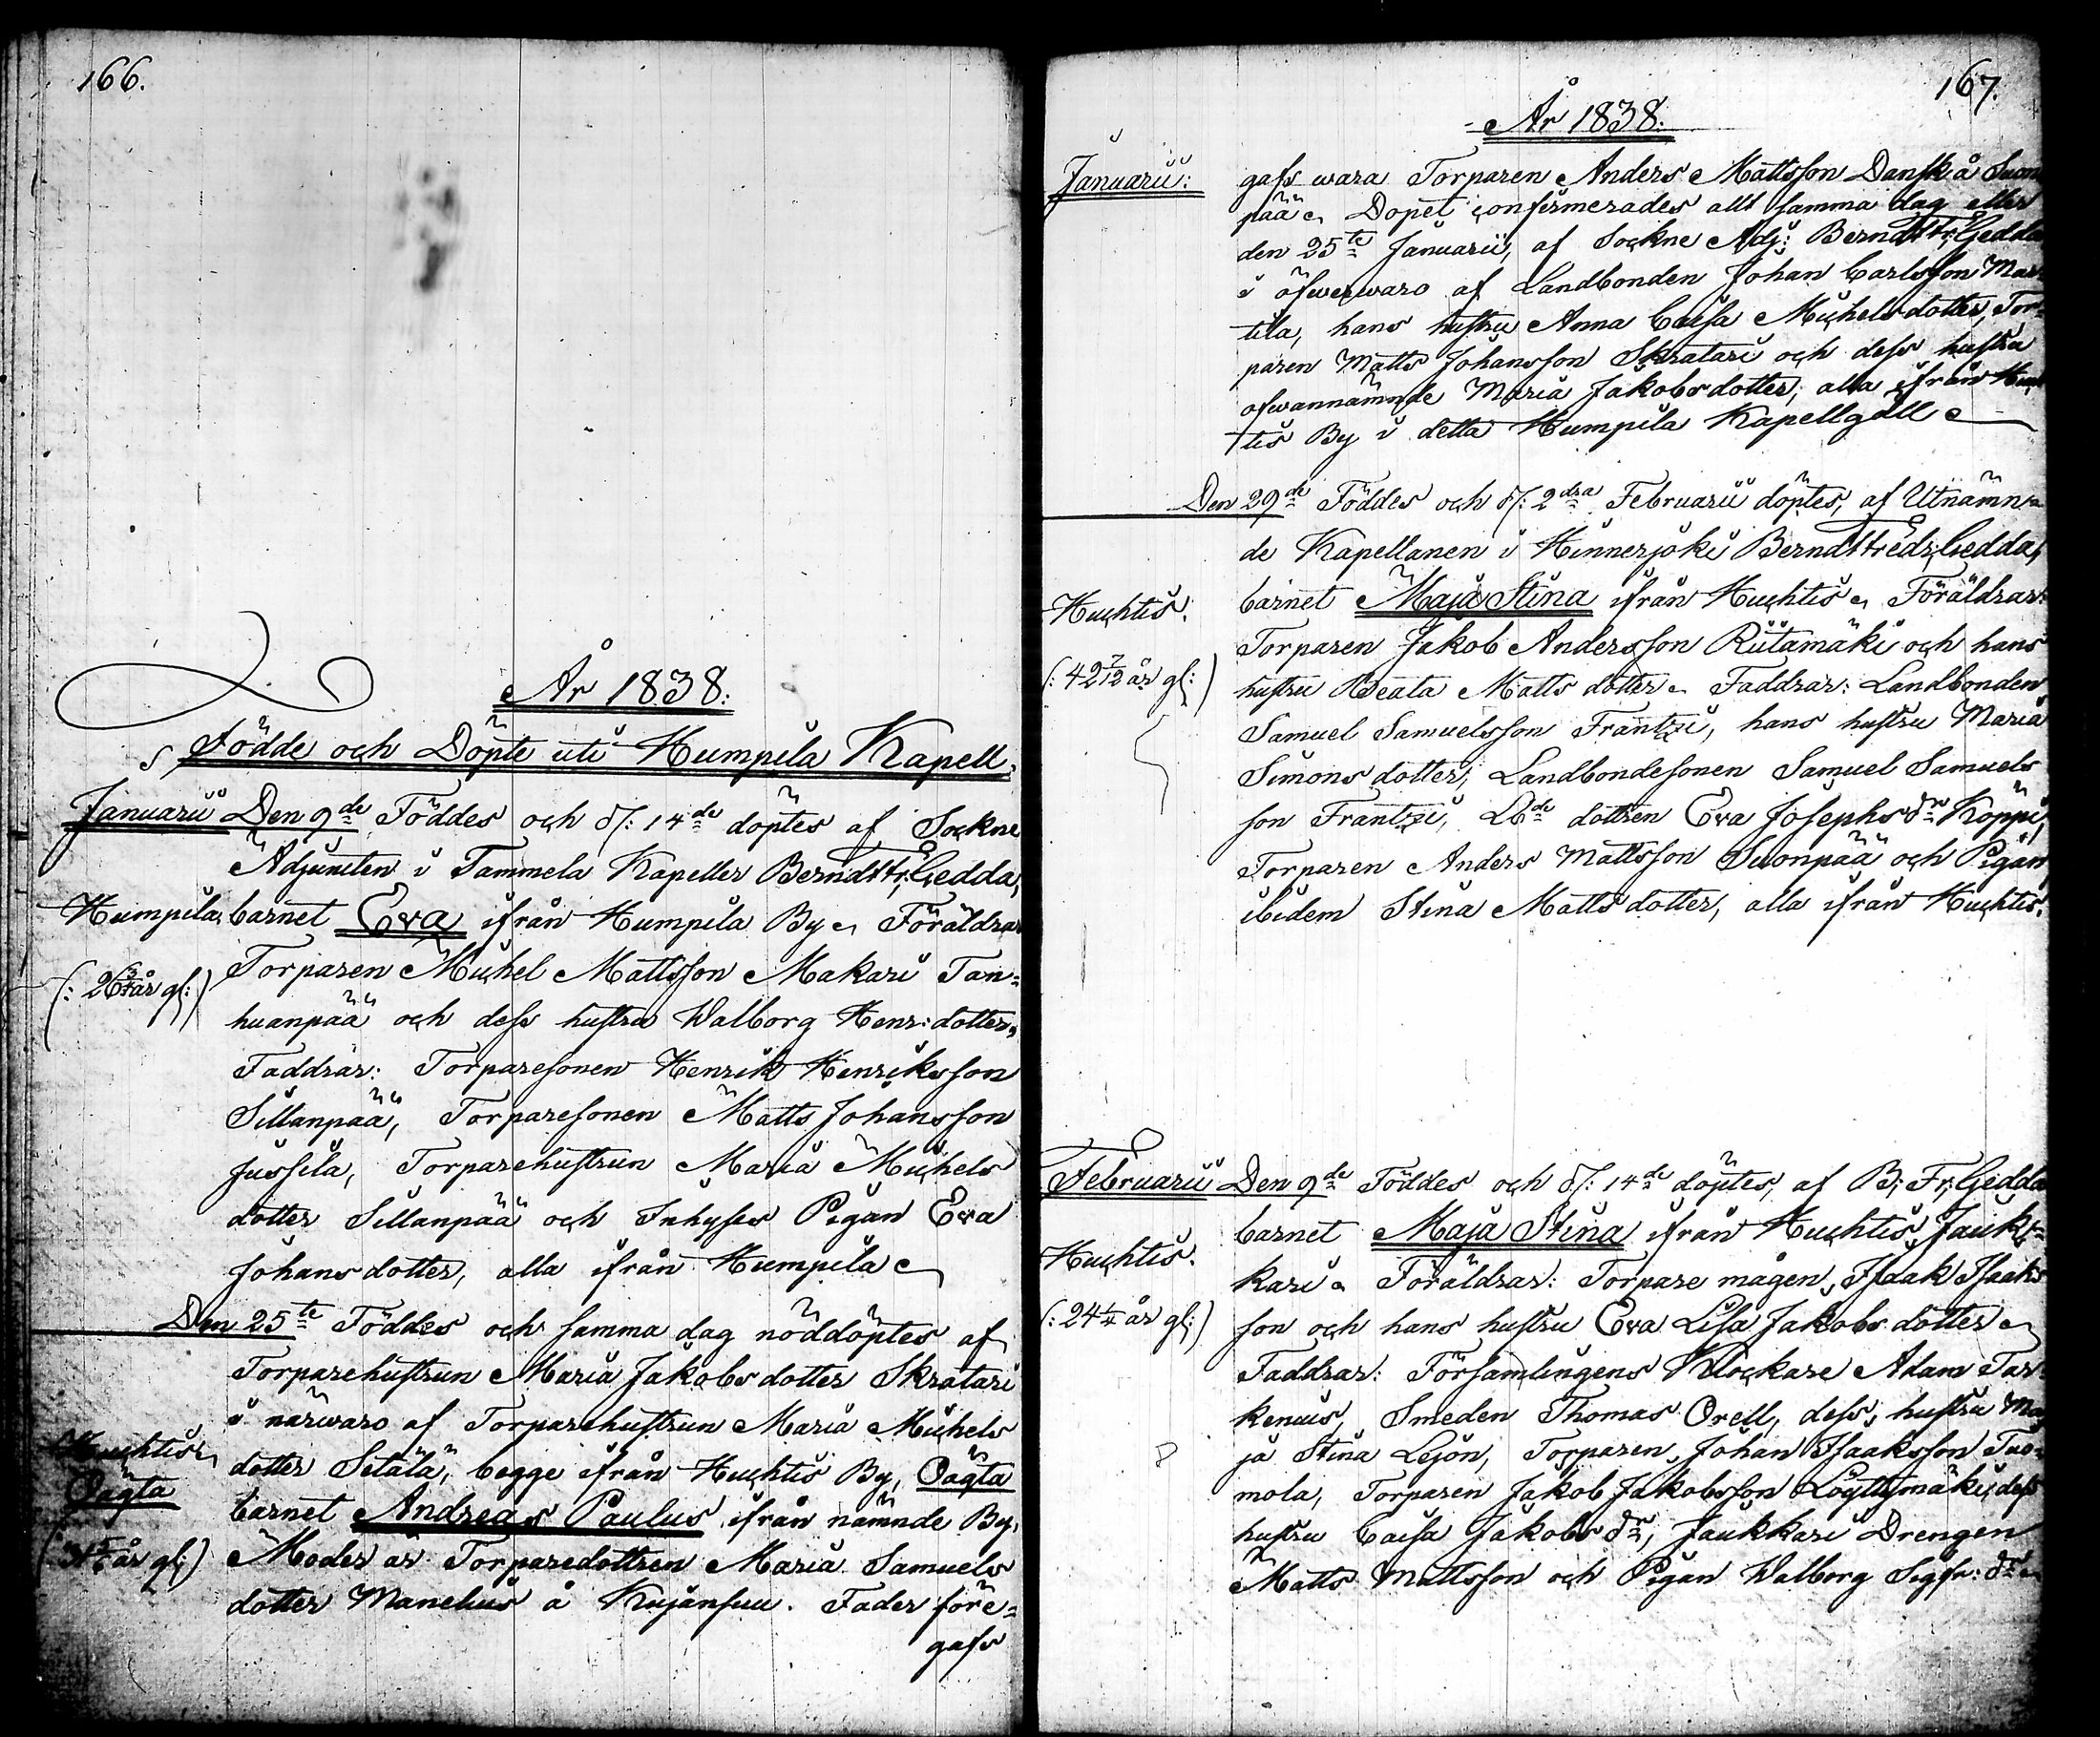 166.
År 1838:
Födde och Döpte uti Humpila Kapell.
Januarii Den 9de Föddes och d/: 14de döptes af Sockne
Adjuncten i Tammela Kapeller Berndt Fr: Gedda,
Humpila, barnet Eva ifrån Humpila By. Föräldrar
(: 26 3/4 år gl:) Torparen Michel Mattsson Makari Tan=
huanpää och dess hustru Walborg Henr: dotter,
Faddrar: Torparesonen Henrik Henriksson
Sillanpää, Torparesonen Matts Johansson
Jussila, Torparehustrun Maria Michels
dotter Sillanpää och Inhyses Pigan Eva
Johansdotter, alla ifrån Humpila
Den 25te Föddes och samma dag nöddöptes af
Torparehustrun Maria Jakobsdotter Skratari
i närwaro af Torparehustrun Maria Michels
Huchtis, dotter Setälä, begge ifrån Huchtis By, Oägta
Oägta barnet Andreas Paulus ifrån nämnde By.
år gl:) Moder är Torparedottren Maria Samuels
dotter Manelius å Kujansuu. Fader före=
gafs
167.
År 1838:
Januarii: gafs wara Torparen Anders Mattsson Dansk å Suon
pää. Dopet confirmerades allt samma dag eller
den 25te Januarii, af Sockne Adj: Berndt Fr: Gedda
i öfwerwaro af Landbonden Johan Carlsson Mar
tila, hans hustru Anna Caisa Michelsdotter, Tor=
paren Matts Johansson Skratari och dess hustru
ofwannämnde Maria Jakobsdotter, alla ifrån Huch
tis By i detta Humpila Kapellgäll
Den 29de Föddes och d/: 2dra Februarii döptes, af Utnämn=
de Kapellanen i Hinnerjoki Berndt Fredr: Gedda,
Huchtis. barnet Maja Stina ifrån Huchtis. Föräldrar:
Torparen Jakob Andersson Riitamäki och hans
(: 42 7/12 år gl:) hustru Beata Mattsdotter. Faddrar: Landbonden
Samuel Samuelsson Frantzi, hans hustru Maria
Simonsdotter, Landbondesonen Samuel Samuels
son Frantzi, Lbde dottren Eva Josephsdr Köppi,
Torparen Anders Mattsson Suonpää och Pigan
ibidem Stina Mattsdotter, alla ifrån Huchtis.
Februarii Den 9de Föddes och d/: 14de döptes, af B: Fr: Gedda
barnet Maja Stina ifrån Huchtis, Jauk=
Huchtis. kari. Föräldrar: Torpare mågen, Isaak Isaaks
(: 24 år gl:) son och hans hustru Eva Lisa Jakobsdotter
Faddrar: Församlingens Klockare Adam Tar
kenius, Smeden Thomas Orell, dess hustru Ma
ja Stina Lejon, Torparen Johan Isaaksson Tuo=
mola, Torparen Jakob Jakobsson Löyttymäki, dess
hustru Caisa Jakobsdr, Jaukkari Drengen
Matts Mattsson och Pigan Walborg Sigfr: dr